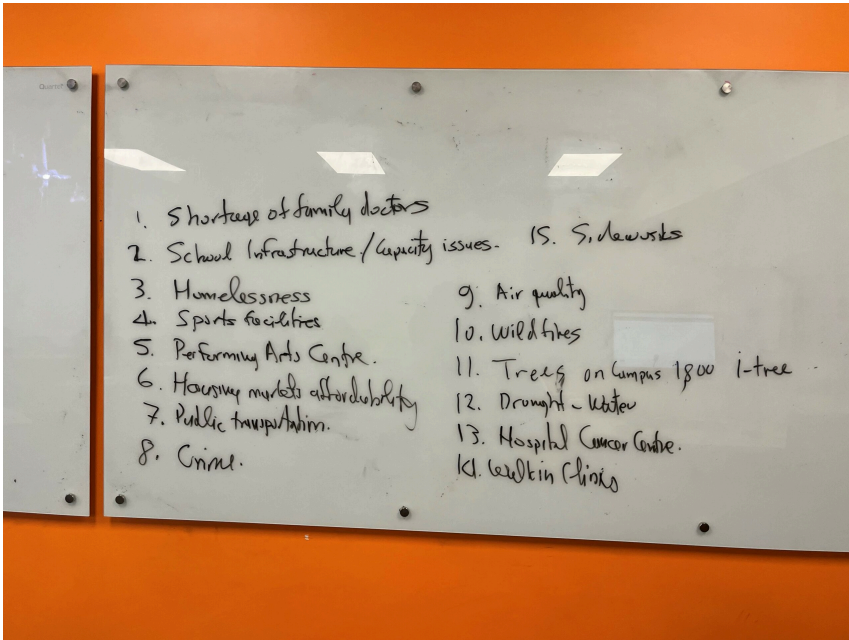 1. Shortage of family doctors
2. School Infrastructure/Capacity issues.
3. Homelessness
4. Sports facilities
5. Performing Arts Centre.
6. Housing markets affordability
7. Public transportation.
8. Crime.
15. Sidewalks
9. Air quality
10. Wildfires
11. Trees on Campus 1800 i-tree
12. Drought - Water
13. Hospital Cancer Centre.
14. Walkin Clinics